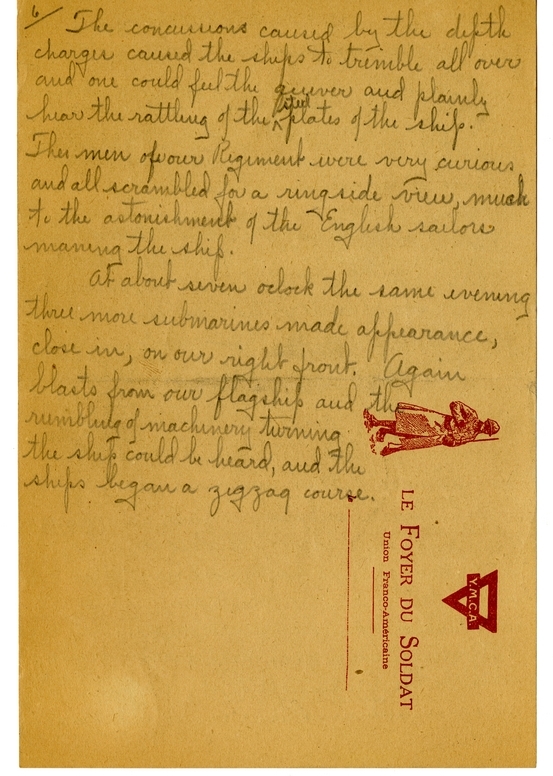 6/
The concussions caused by the depth
charges caused the ships to trimble all over
and one could feel the quiver and plainly
hear the rattling of the steel plates of the ship.
The men of our Regiment were very curious
and all scrambled for a ring side view, much
to the astonishment of the English sailors
maning the ship.
At about seven oclock the same evening
three more submarines made appearance,
close in, on our right front. Again
blasts from our flagship and the
rumbling of machinery turning
the ship could be heard, and the
ships began a zigzag course.
Y.M.C.A.
LE FOYER DU SOLDAT
Union Franco-Américaine